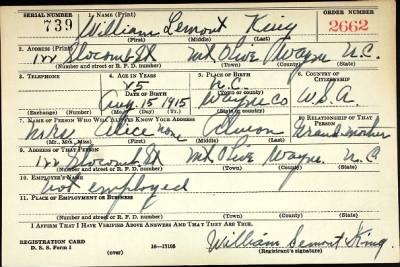 SERIAL NUMBER 1. NAME (Print) ORDER NUMBER
739 William Lemont King 2662
(First) (Middle) (Last)
2. ADDRESS (Print)
122 Slocomb St Mt Olive Wayne N.C.
(Number and street or R. F. D. number) (Town) (County) (State)
3. TELEPHONE 4. AGE IN YEARS 5. PLACE OF BIRTH 6. COUNTRY OF CITIZENSHIP
25 N.C.
DATE OF BIRTH
Aug 15 1915 Wayne Co U.S.A.
(Exchange) (Number) (Mo.) (Day) (Yr.) (State or country)
7. NAME OF PERSON WHO WILL ALWAYS KNOW YOUR ADDRESS 8. RELATIONSHIP OF THAT PERSON
Mrs Alice none Grandmother
(Mr., Mrs., Miss) (First) (Middle) (Last)
9. ADDRESS OF THAT PERSON
122 Slocomb St Mt Olive Wayne N.C.
(Number and street or R. F. D. number) (Town) (County) (State)
10. EMPLOYER'S NAME
Not employed
11. PLACE OF EMPLOYMENT OR BUSINESS
(Number and street or R. F. D. number) (Town) (County) (State)
I AFFIRM THAT I HAVE VERIFIED ABOVE ANSWERS AND THAT THEY ARE TRUE.
REGISTRATION CARD
D. S. S. Form 1 (over) 16—17105 William Lemont King
(Registrant's signature)